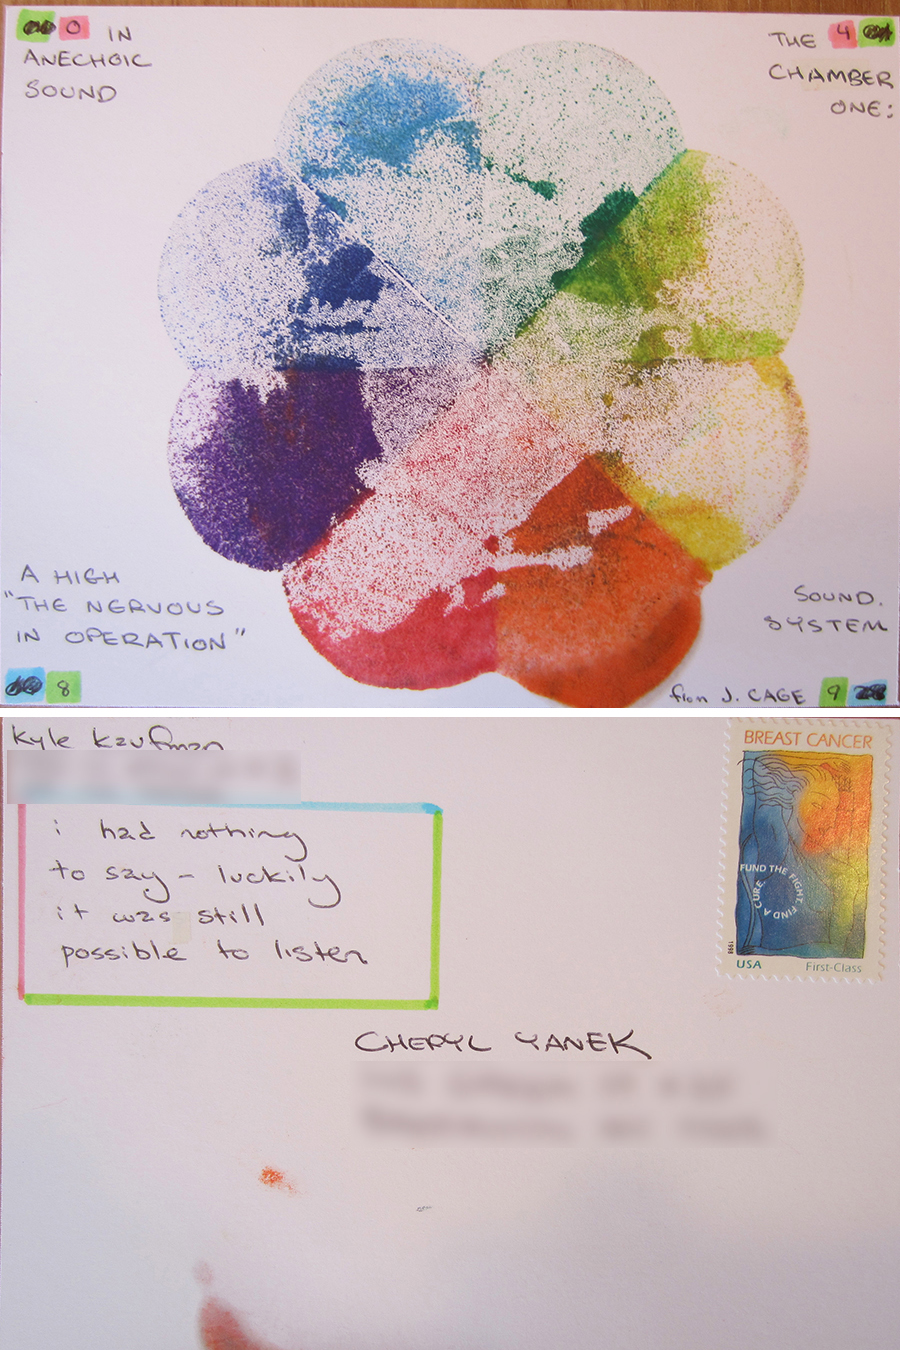 0 IN
ANECHOIC
SOUND
THE 4
CHAMBER
ONE:
A HIGH
"THE NERVOUS
IN OPERATION"
8
SOUND.
SYSTEM
from J. CAGE 9
Kyle Kaufman
i had nothing
to say - luckily
it was still
possible to listen
BREAST CANCER
FUND THE FIGHT. FIND A CURE
1998
USA First-Class
CHERYL YANEK